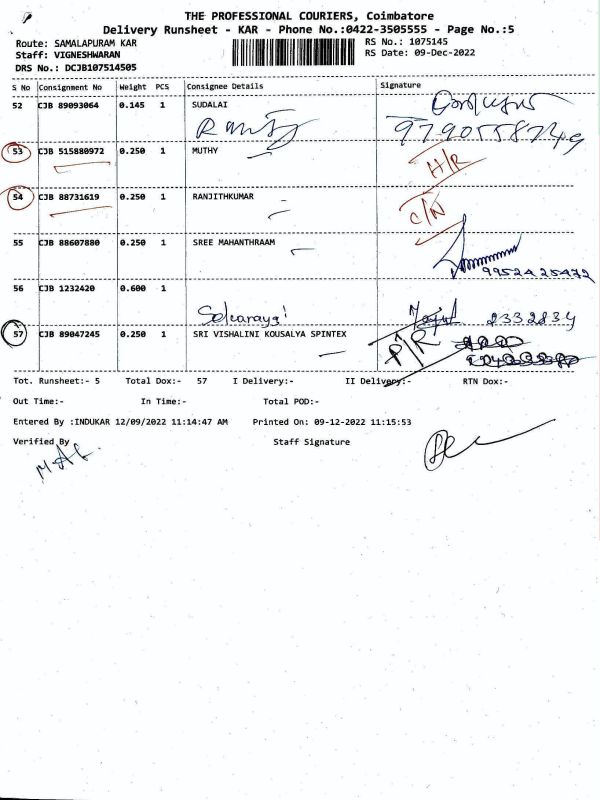 THE PROFESSIONAL COURIERS, Coimbatore
Delivery Runsheet - KAR - Phone No.:0422-3505555 - Page No.:5
Route: SAMALAPURAM KAR
RS No.: 1075145
Staff: VIGNESHWARAN
RS Date: 09-Dec-2022
DRS No.: DCJB107514505
S No Consignment No Weight PCS Consignee Details Signature
52 CJB 89093064 0.145 1 SUDALAI
53 CJB 515880972 0.250 1 MUTHY
H/R
54 CJB 88731619 0.250 1 RANJITHKUMAR
C/N
55 CJB 88607880 0.250 1 SREE MAHANTHRAAM
9952425472
56 CJB 1232420 0.600 1
Selvaraya! 2332834
57 CJB 89047245 0.250 1 SRI VISHALINI KOUSALYA SPINTEX
P/R
Tot. Runsheet:- 5 Total Dox:- 57 I Delivery:- II Delivery:- RTN Dox:-
Out Time:- In Time:- Total POD:-
Entered By :INDUKAR 12/09/2022 11:14:47 AM Printed On: 09-12-2022 11:15:53
Verified By Staff Signature